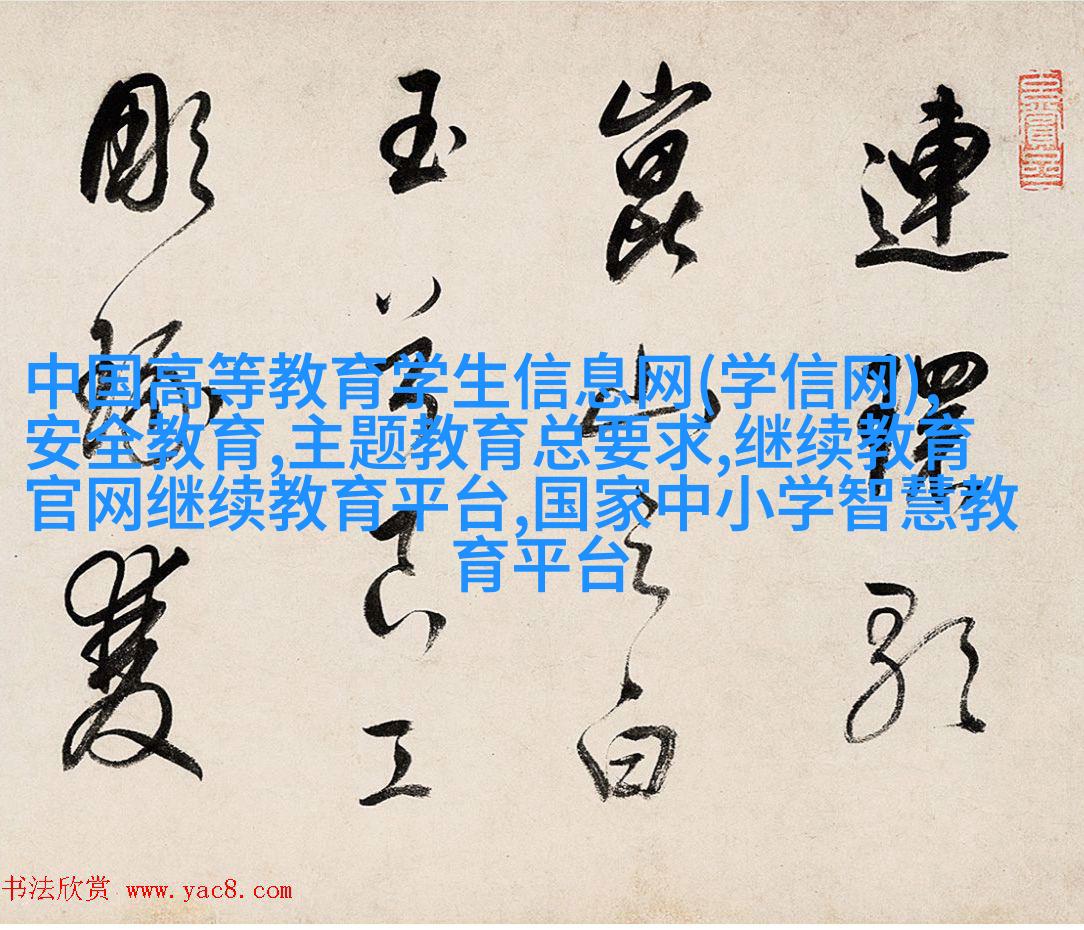 連 歌
崑山之白
玉 良工
彫 雙
中国高等教育学生信息网(学信网),
安全教育,主题教育总要求,继续教育
官网继续教育平台,国家中小学智慧教
育平台
书法欣赏 www.yac8.com